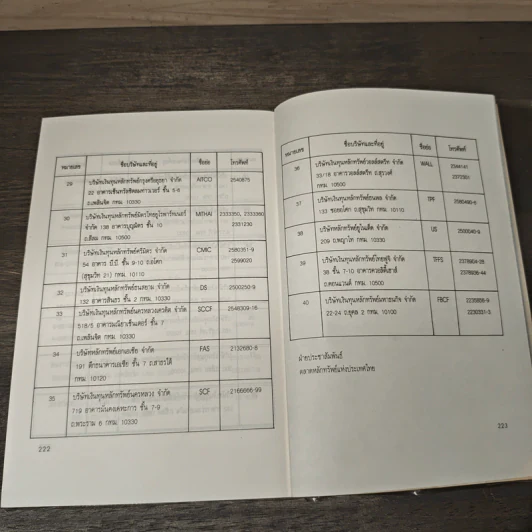 หมายเลข ชื่อบริษัทและที่อยู่ ชื่อย่อ โทรศัพท์
29 บริษัทเงินทุนหลักทรัพย์กรุงศรีอยุธยา จำกัด AITCO 2540875
32 อาคารเซ็นทรัลชิดลมทาวเวอร์ ชั้น 5-8
ถ.เพลินจิต กทม. 10330
30 บริษัทเงินทุนหลักทรัพย์มิตรไทยยุโรพาร์ทเนอร์ MITHAI 2333350, 2333360
จำกัด 138 อาคารบุญมิตร ชั้น 10 2331230
ถ.สีลม กทม. 10500
31 บริษัทเงินทุนหลักทรัพย์ศรีมิตร จำกัด CMIC 2580351-9
54 อาคาร บี.บี. ชั้น 9-10 ถ.อโศก 2599020
(สุขุมวิท 21) กทม. 10110
32 บริษัทเงินทุนหลักทรัพย์ธนสยาม จำกัด DS 2500250-9
132 อาคารสินธร ชั้น 2 กทม. 10330
33 บริษัทเงินทุนหลักทรัพย์นครหลวงเครดิต จำกัด SCCF 2548309-16
518/5 อาคารมณียาเซ็นเตอร์ ชั้น 7
ถ.เพลินจิต กทม. 10330
34 บริษัทหลักทรัพย์เอกเอเซีย จำกัด FAS 2132680-8
191 ตึกธนาคารเอเซีย ชั้น 7 ถ.สาธรใต้
กทม. 10120
35 บริษัทเงินทุนหลักทรัพย์นครหลวง จำกัด SCF 2166666-99
719 อาคารมั่นคงเคหะการ ชั้น 7-9
ถ.พระราม 6 กทม. 10330
222
หมายเลข ชื่อบริษัทและที่อยู่ ชื่อย่อ โทรศัพท์
36 บริษัทเงินทุนหลักทรัพย์วอลล์สตรีท จำกัด WALL 2344141
33/18 อาคารวอลล์สตรีท ถ.สุรวงศ์ 2372351
กทม. 10500
37 บริษัทเงินทุนหลักทรัพย์ธนพล จำกัด TPF 2585490-6
133 ซอยอโศก ถ.สุขุมวิท กทม. 10110
38 บริษัทหลักทรัพย์ยูไนเต็ด จำกัด US 2500040-9
209 ถ.พญาไท กทม. 10330
39 บริษัทเงินทุนหลักทรัพย์ไทยฟูจิ จำกัด TFFS 2378924-28
38 ชั้น 7-10 อาคารควอลิตี้เฮาส์ 2378938-44
ถ.คอนแวนต์ กทม. 10500
40 บริษัทเงินทุนหลักทรัพย์มหาธนกิจ จำกัด FBCF 2235806-9
22-24 ถ.ยุคล 2 กทม. 10100 2230351-3
ฝ่ายประชาสัมพันธ์
ตลาดหลักทรัพย์แห่งประเทศไทย
223